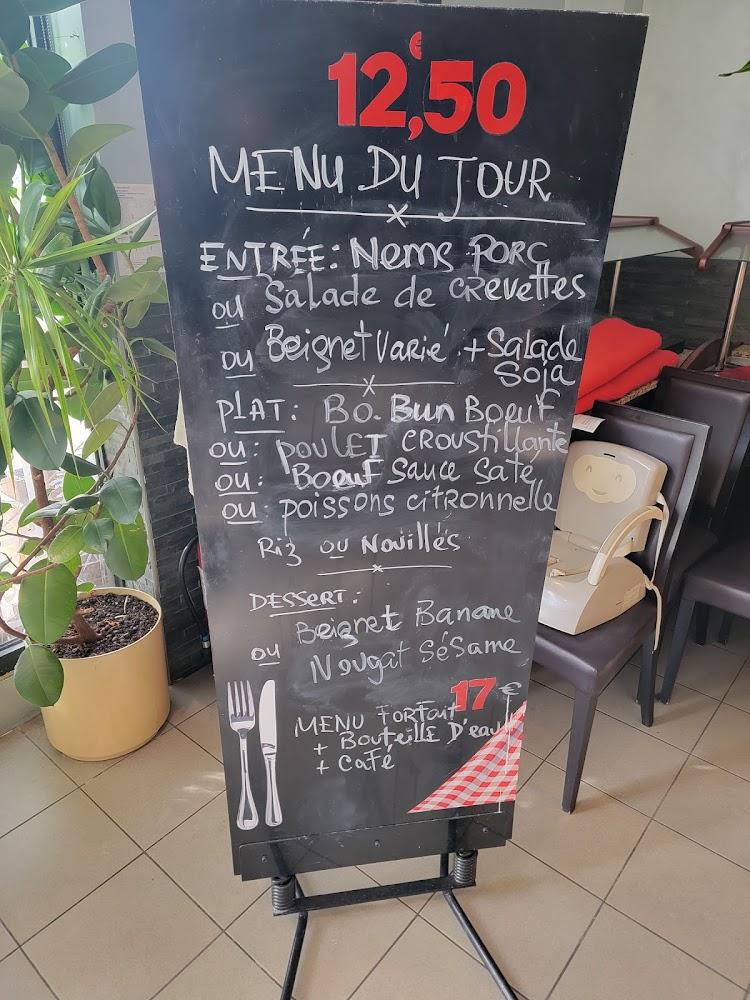 12,50 €
MENU DU JOUR
ENTRÉE: Nems PORC
ou Salade de crevettes
ou Beignet Varié + Salade
Soja
PLAT: BO.Bun Boeuf
ou: POULET CROUSTILLANTE
ou: Boeuf Sauce Saté
ou: poissons citronnelle
Riz ou Nouillés
DESSERT:
Beignet Banane
ou Nougat Sésame
17 €
MENU FORFAIT
+ Bouteille D'eau
+ Café